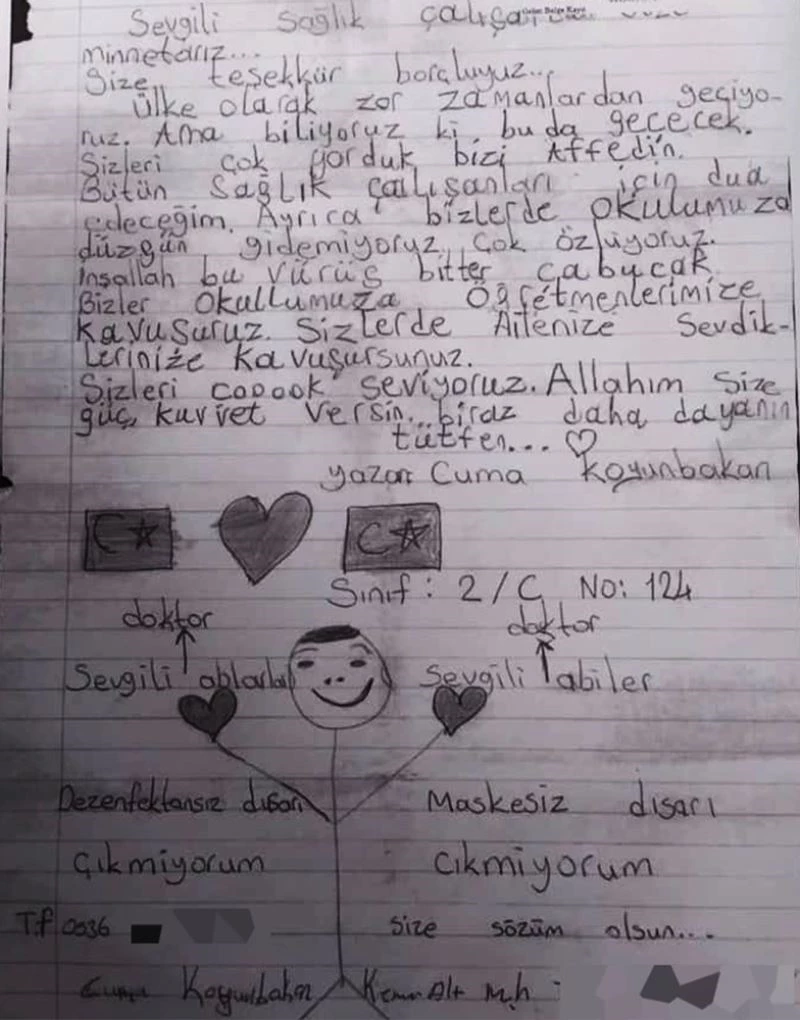 Sevgili Sağlık
minnetarız...
Size teşekkür borçluyuz...
Ülke olarak zor zamanlardan geçiyo-
ruz. Ama biliyoruz ki bu da geçecek.
Sizleri çok yorduk bizi Affedin.
Bütün Sağlık çalışanları için dua
edeceğim. Ayrıca bizlerde okulumuza
düzgün gidemiyoruz. Çok özlüyoruz.
İnşallah bu vürüs bitter çabucak
Bizler Okullumuza Öğretmenlerimize
Kavuşuruz. Sizlerde Ailenize Sevdik-
Lerinize kavuşursunuz.
Sizleri cooook seviyoruz. Allahım Size
güç, kuvvet versin... biraz daha dayanın
tütfen... ♡
yazan Cuma Koyunbakan
Sınıf : 2/C No: 124
doktor doktor
Sevgili ablarla Sevgili abiler
Dezenfektansız dışarı Maskesiz dısarı
Çıkmiyorum Cıkmiyorum
Tlf 0536 size sözüm olsun...
Cuma Koyunbakan Kemer Alt Mh